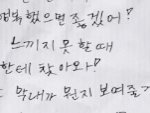 행복했으면 좋겠어?
느끼지 못할때
한테 찾아와?
막내가 뭔지 보여줄